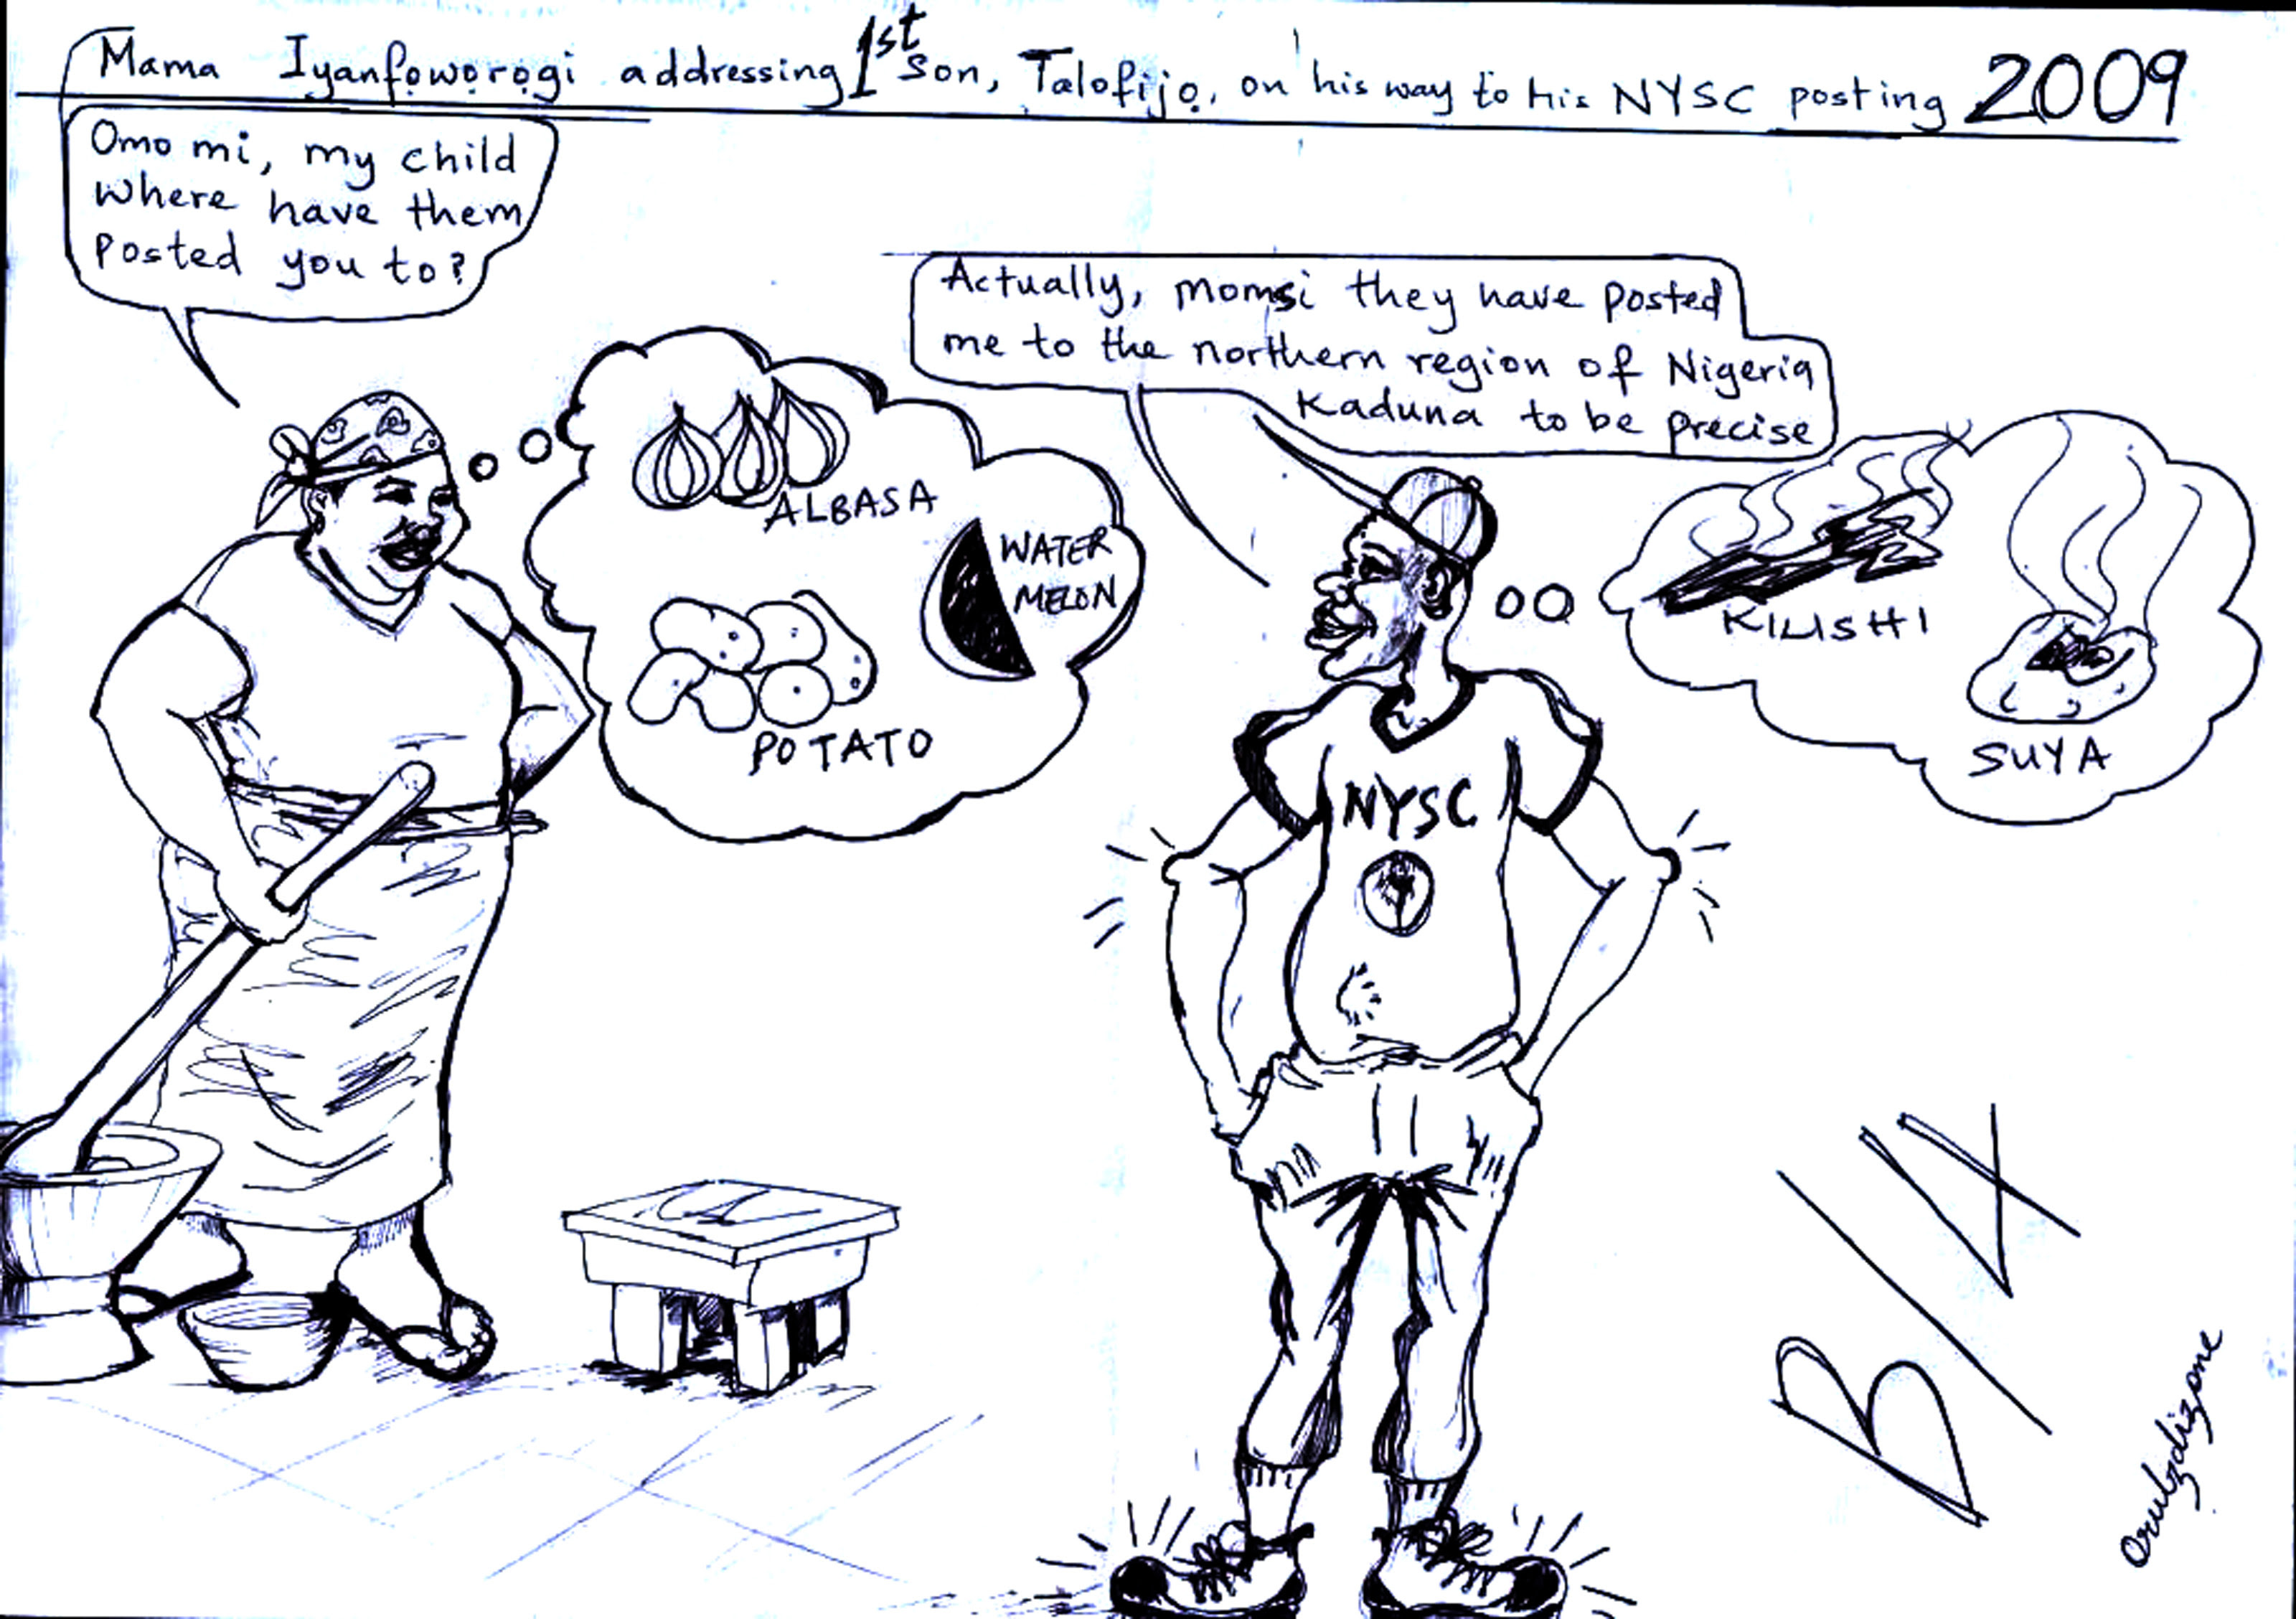 Mama Iyanfọwọrọgi addressing 1st son, Talofijọ, on his way to his NYSC posting 2009
Omo mi, my child
where have them
posted you to?
Actually, momsi they have posted
me to the northern region of Nigeria
Kaduna to be precise
ALBASA
WATER
MELON
POTATO
KILISHI
SUYA
NYSC